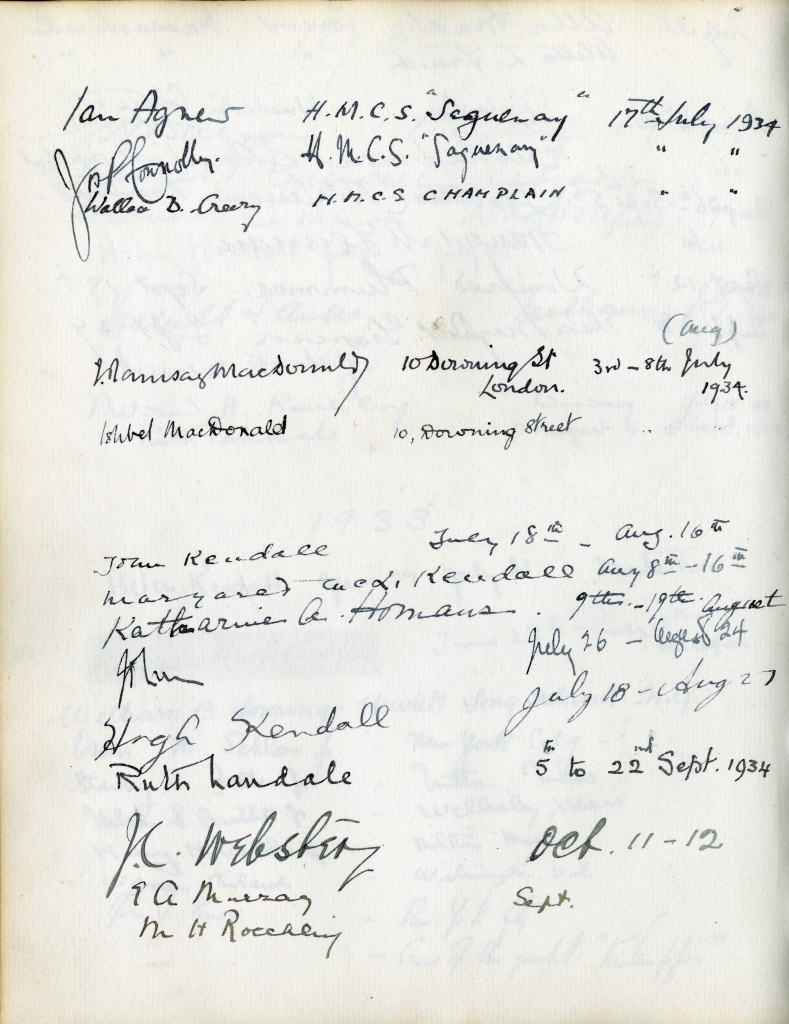 Ian Agnew H.M.C.S. "Saguenay" 17th July 1934
Jos P Connolly. H.M.C.S. "Saguenay" " "
Wallace B. Creery H.M.C.S CHAMPLAIN " "
(Aug)
J. Ramsay MacDonald 10 Downing St 3rd - 8th July
London. 1934.
Ishbel MacDonald 10, Downing Street .. ..
1933
John Kendall July 18th - Aug. 16th
Margaret Kendall Aug 8th - 16th
Katharine A. Homans. 9th - 19th August
John July 26 - August 24
Hugh Kendall July 18 - Aug 27
Ruth Landale 5th to 22nd Sept. 1934
J.C. Webster Oct. 11 - 12
E A Murray Sept.
M H Roechling